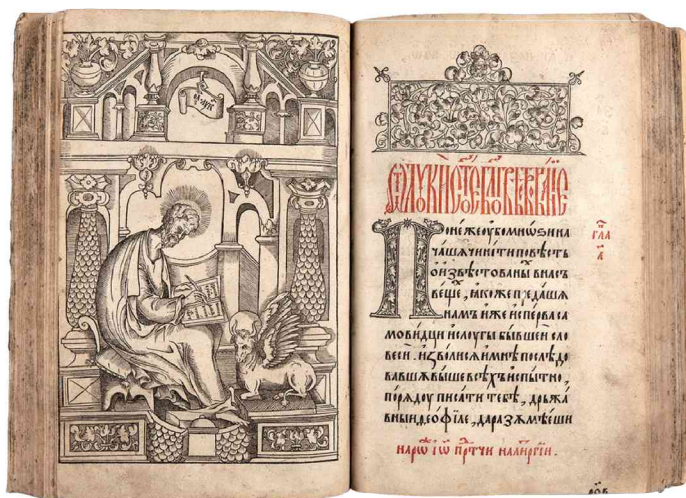 Ѿ лꙋки ст҃ое
Понеже оубо мнѡѕи на
чашѧ чинити повѣсть
о извѣстованыⷯ в насъ
вещеⷯ, ꙗкоже предашѧ
намъ иже исперва са
мовидци и слоугы бывшеи сло
веси. Изволисѧ и мнѣ послѣдо
вавшѫ выше всѣхъ испытно,
порѧдоу писати тебѣ, дръжа
вныи ѳеоѳиле, да разѫмѣеши
гл҃а
а҃